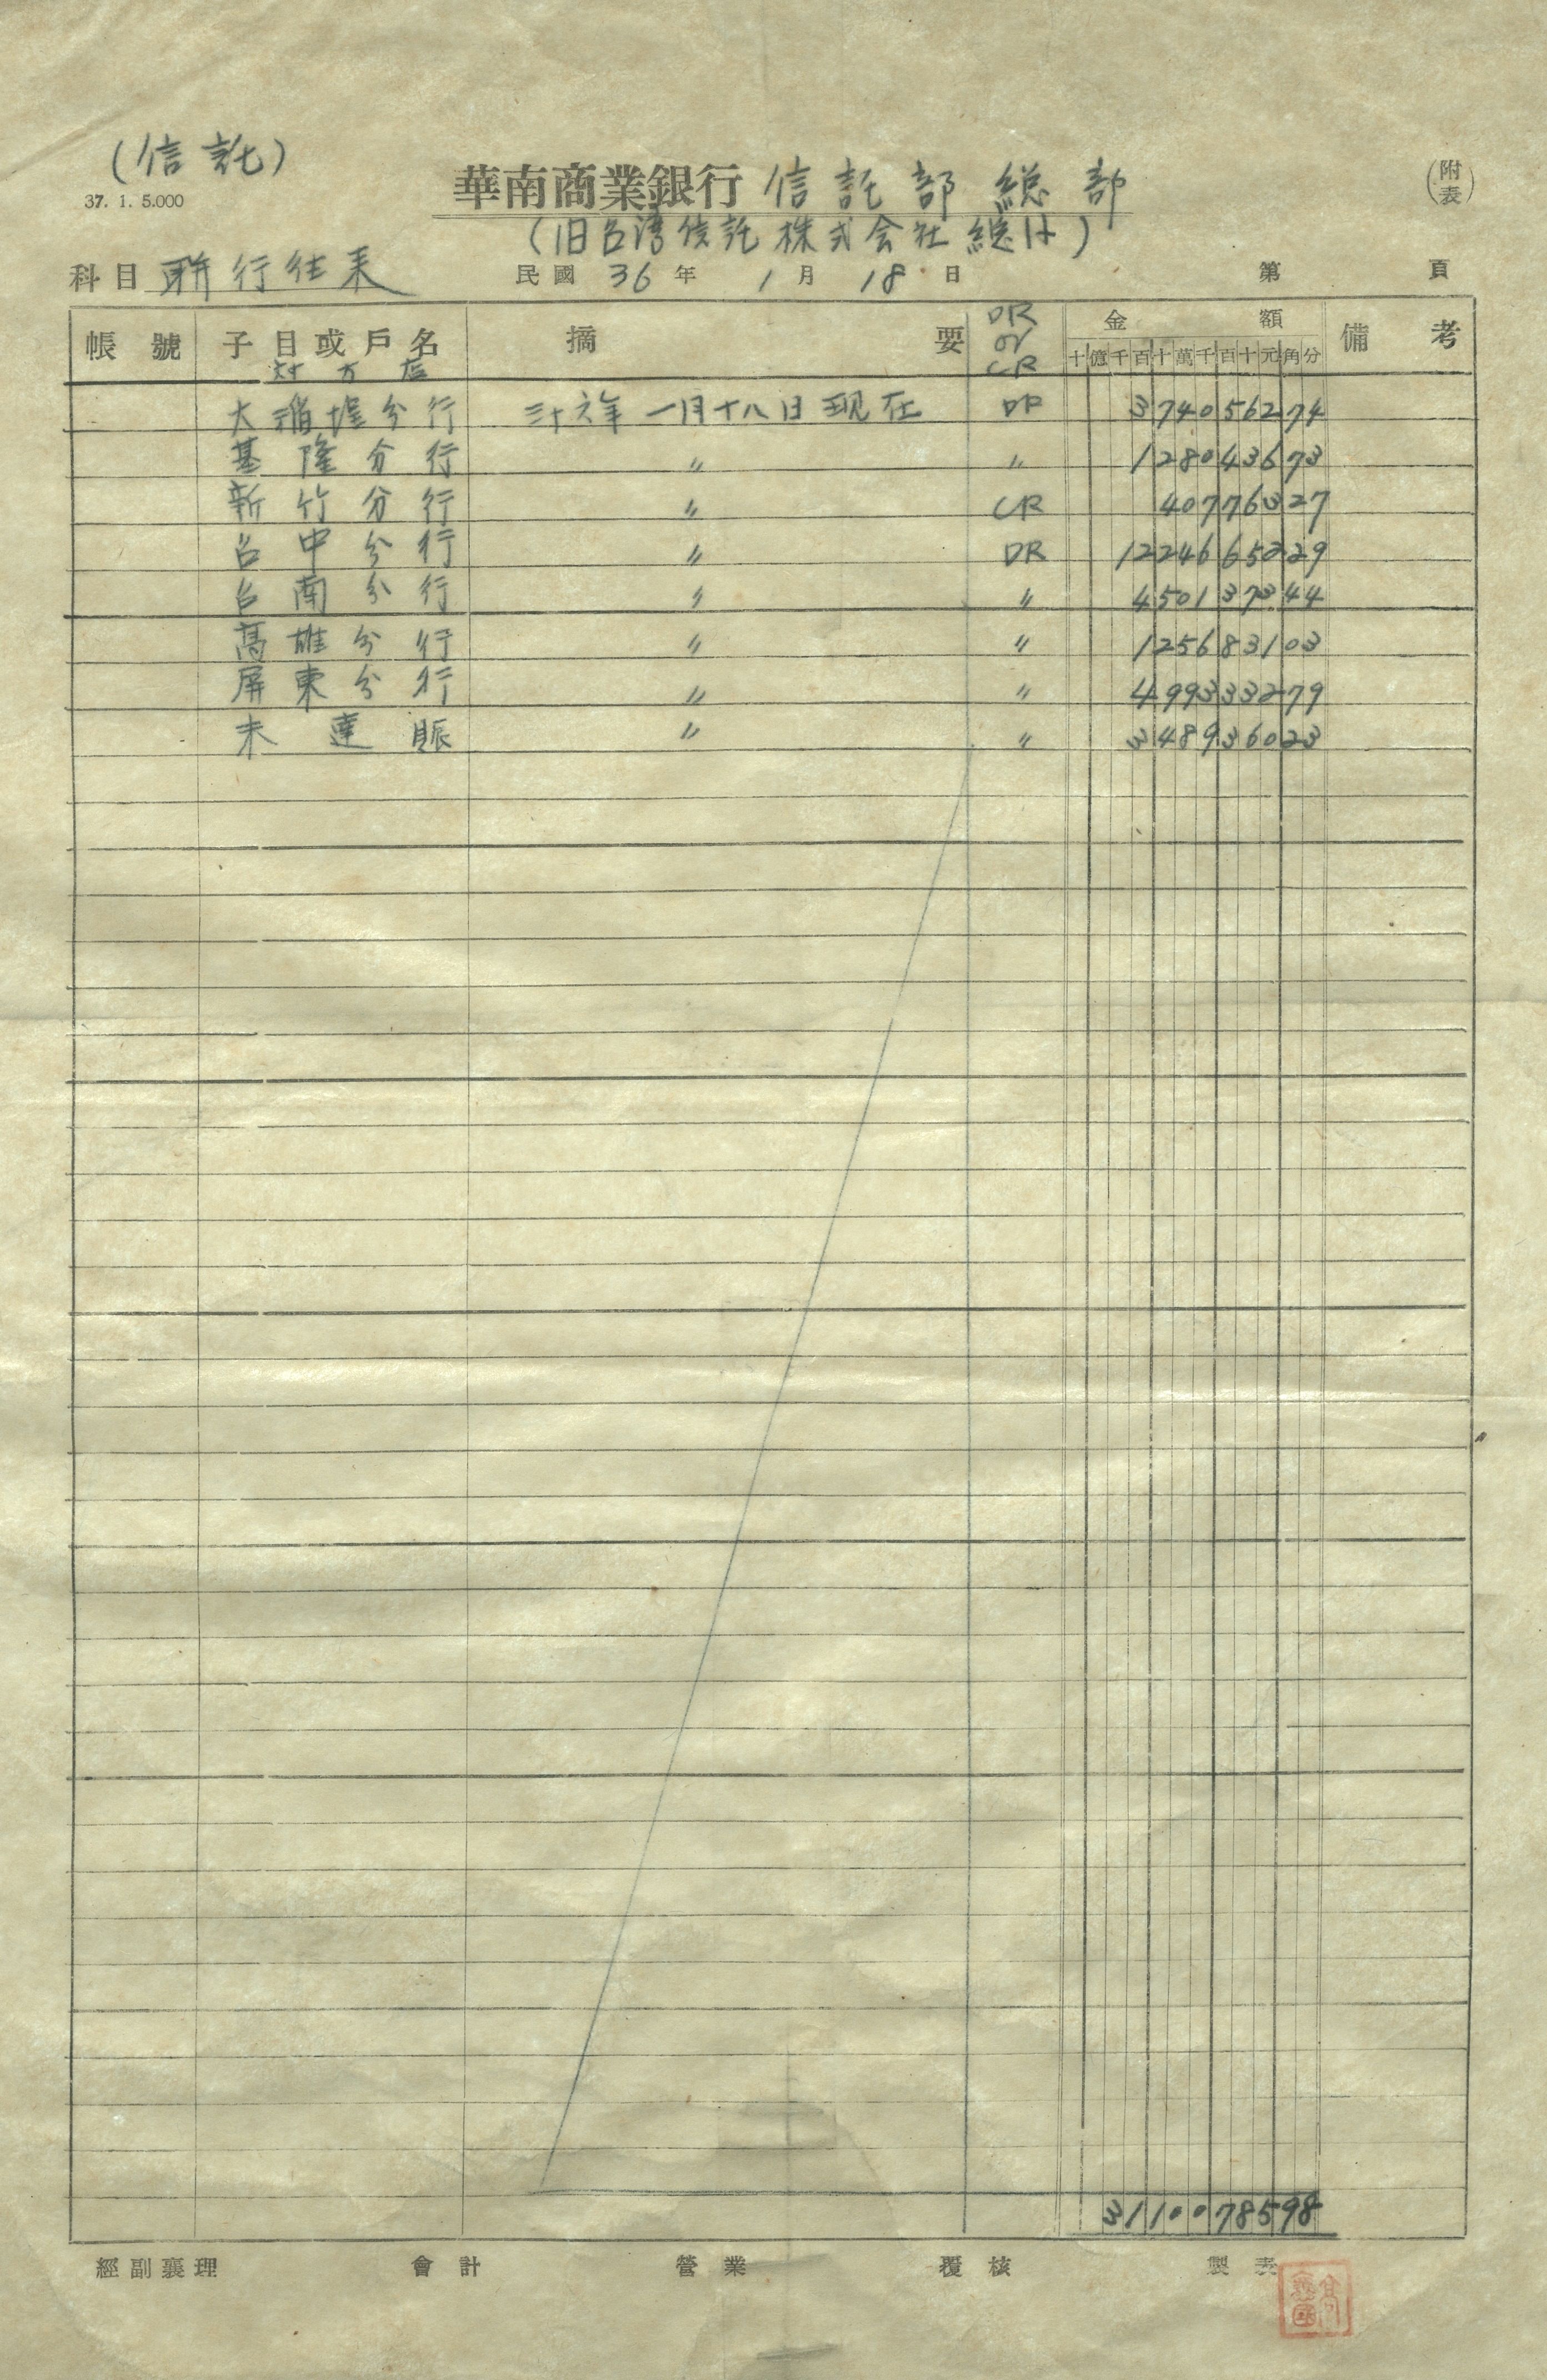 (信託)
37. 1. 5.000
華南商業銀行 信託部總部
(附表)
(旧台湾信託株式会社総付)
科目 聯行往来 民國 36 年 1 月 18 日 第 頁
帳號 子目或戶名 摘要 DR or CR 金額 備考
対方店 十億千百十萬千百十元角分
大稻埕分行 三十六年一月十八日現在 DR 3740562 74
基隆分行 〃 〃 1280436 73
新竹分行 〃 CR 407763 27
台中分行 〃 DR 12246652 29
台南分行 〃 〃 4501373 44
高雄分行 〃 〃 1256831 03
屏東分行 〃 〃 4993332 79
未達賬 〃 〃 3489360 23
31100785 98
經副襄理 會計 營業 覆核 製表